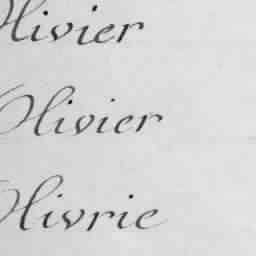 Olivier
Olivier
Olivrie